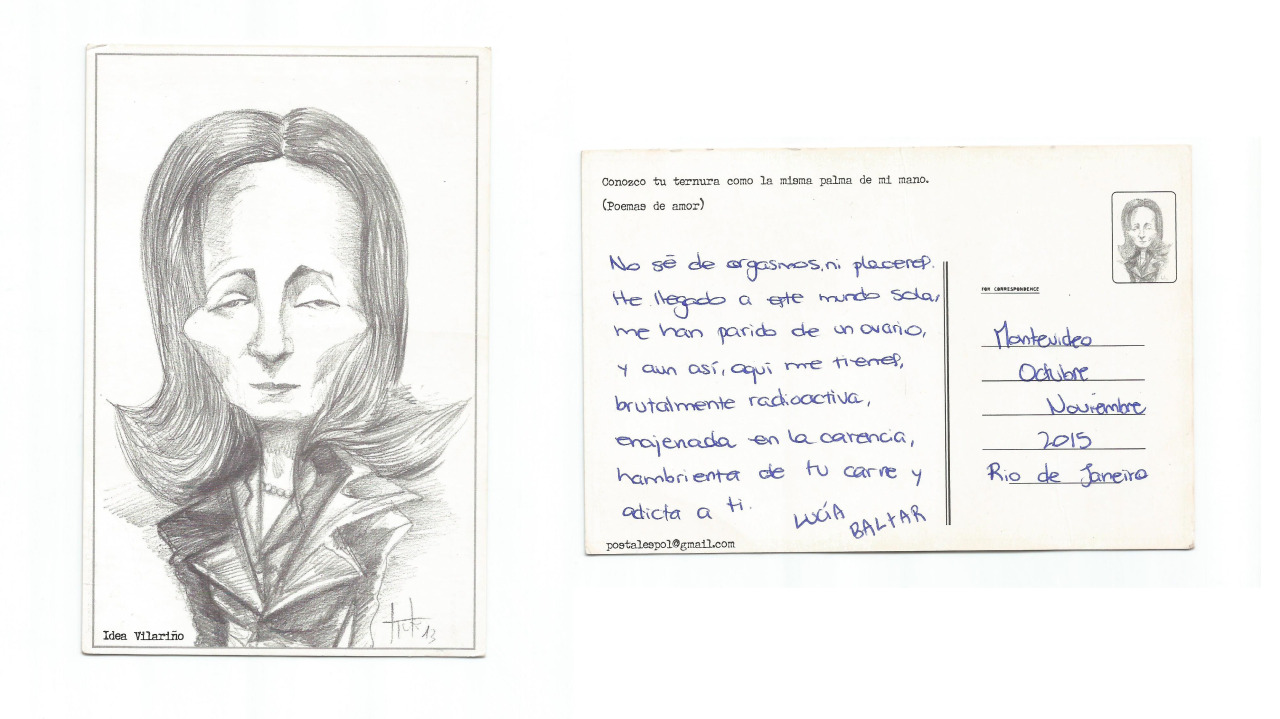 Idea Vilariño
13
Conozco tu ternura como la misma palma de mi mano.
(Poemas de amor)
No sé de orgasmos, ni placeres.
He llegado a este mundo sola,
me han parido de un ovario,
y aun así, aquí me tienes,
brutalmente radioactiva,
enajenada en la carencia,
hambrienta de tu carne y
adicta a ti.
LUCÍA
BALTAR
postalespol@gmail.com
FOR CORRESPONDENCE
Montevideo
Octubre
Noviembre
2015
Rio de Janeiro